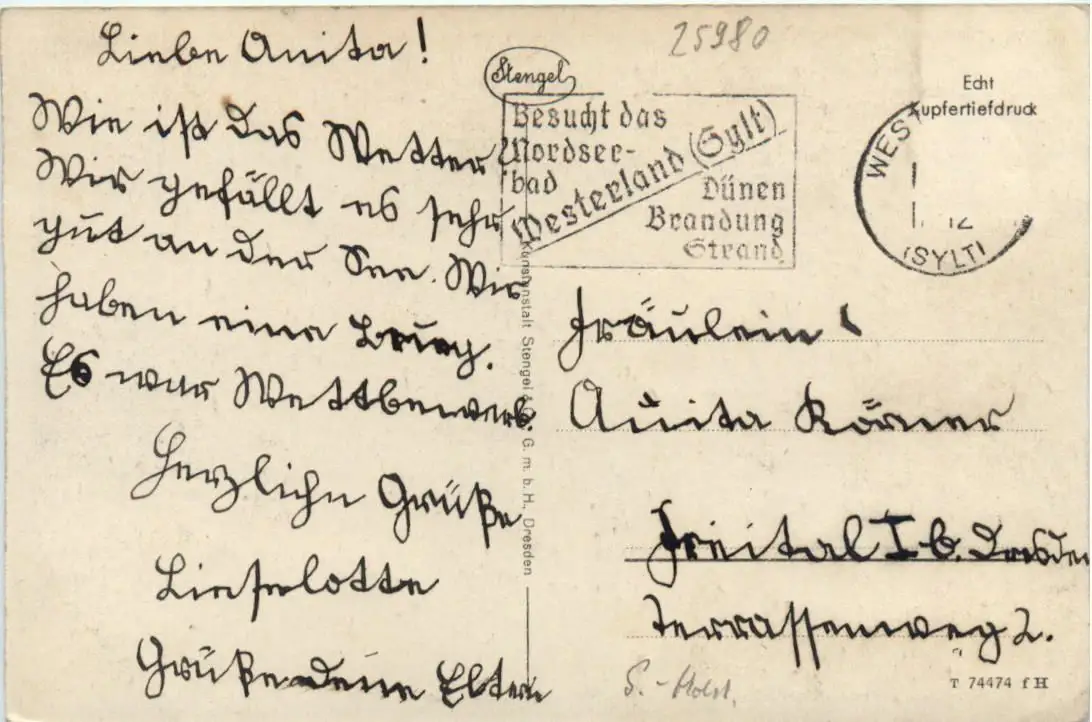 Liebe Anita!
Wie ist das Wetter?
Wir gefällt es sehr
gut an der See. Wir
haben eine Burg.
Es war Wettbewerb.
Herzliche Grüße
Lieselotte
Grüße deine Eltern
25980
Stengel
Besucht das
Nordsee-
bad
Westerland (Sylt)
Dünen
Brandung
Strand
Echt
Kupfertiefdruck
WEST
12
(SYLT)
Kunstanstalt Stengel & Co. G. m. b. H., Dresden
Fräulein
Anita Körner
Freital I b. Dresden
Terrassenweg 2.
S.-Holst.
T 74474 f H